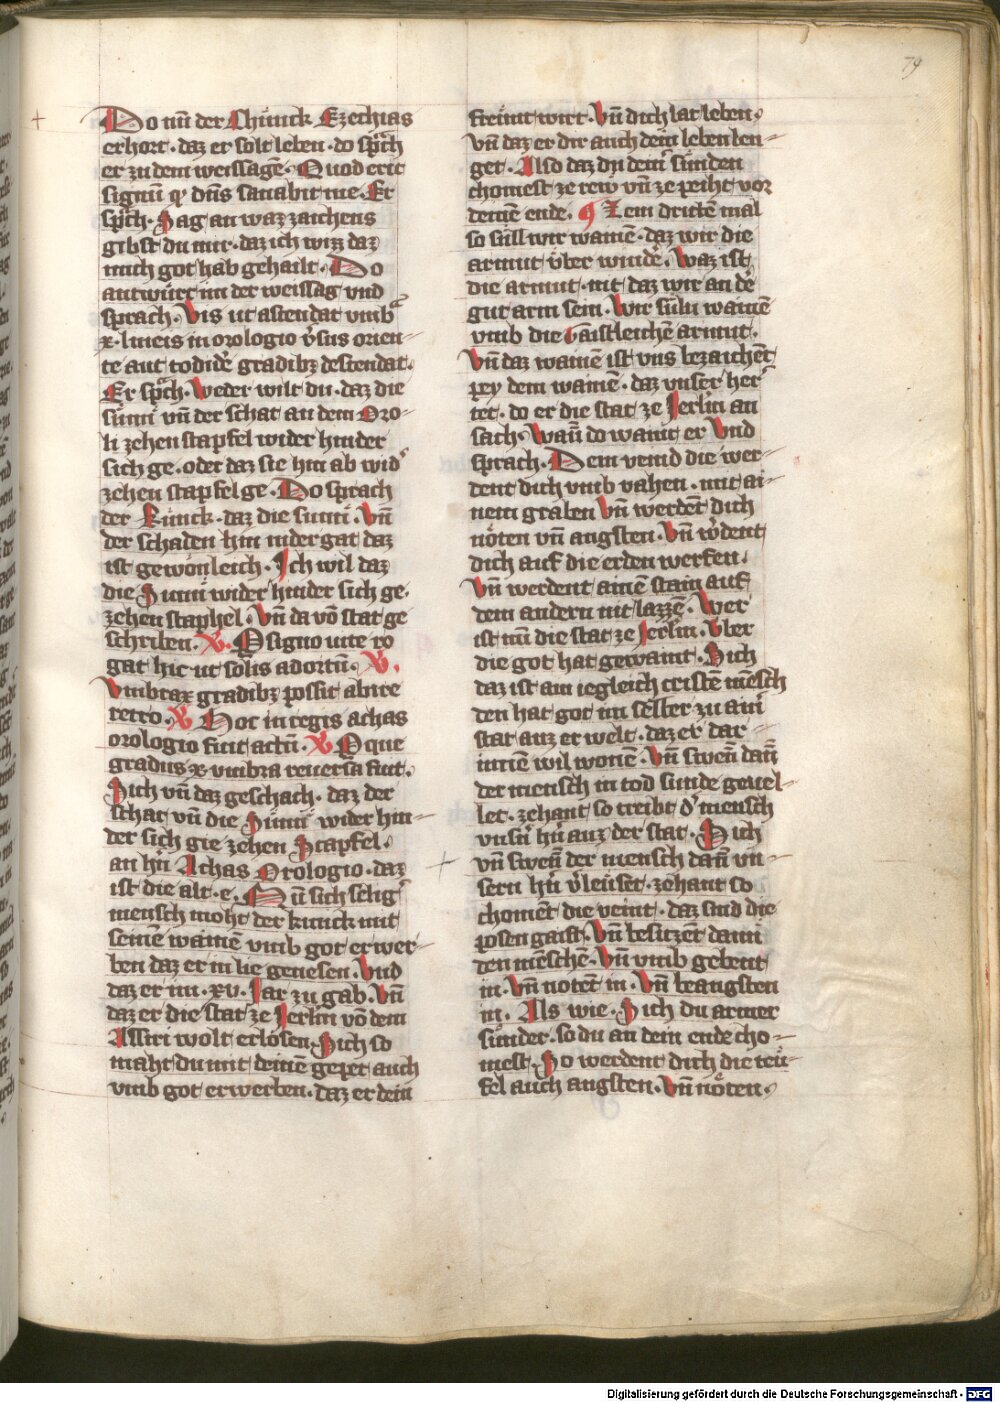 79
Do nu̅ der Chu̍nick Ezechias
erhort. daz er solt leben. do sprach
er zu dem weissagē. Quod erit
signū q dn̄s sanabit me. Er
sprach. Sag an waz zaichens
gibst du mir. daz ich wizz daz
mich got hab gehailt. Do
antwu̍rt im der weissag vnd
sprach. Vis ut astendat vmbra
x. lineis in orologio v̓sus orien-
te aut totidē gradibꝫ descendat.
Er sprach. Weder wilt du. daz die
sunn vn̄ der schat an dem Oro-
li zehen stapfel wider hinder
sich ge. oder daz sie hin ab wid̓
zehen stapfel ge. Do sprach
der Ku̍nick. daz die sunn. Vn̄
der schaden hin nider gat daz
ist gewonleich. Ich wil daz
die Sunn wider hinder sich ge.
zehen staphel. Vn̄ da vō stat ge
schriben. R. O signo vite ro
gat hic ut solis ad ortū. V.
Vmbrax gradibꝫ possit abire
retro. V Hoc in regis achas
orologio fuit actū. V O que
gradus x vmbra reuersa fiut.
Sich vn̄ daz geschach. daz der
schat vn̄ die Sunn wider hin-
der sich gie zehen Stapfel.
an hn̄ Achas Orologio. daz
ist die alt. e. Nu̅ sich selig
mensch moht der kunick mit
seinē wainē vmb got erwer-
ben daz er in lie genesen. Vnd
daz er im .xv. Iar zu gab. Vn̄
daz er die stat ze Jerlm vō dem
Assiri wolt erlosen. Sich so
maht du mit deinē gepet auch
vmb got erwerben. daz er dein
freunt wirt. Vn̄ dich lat leben.
vn̄ daz er dir auch dein leben len-
get. Also daz du deinr sunden
chomest ze rew vn̄ ze peiht vor
deinē ende. ¶ Zem drittē mal
so su̍ll wir wainē. daz wir die
armut u̍ber windē. Waz ist
die armut. nit daz wir an dē
gut arm sein. Wir su̍ln wainē
vmb die Gaistleichen armut.
Vn̄ daz wainē ist vns bezaichēt
pey dem wainē. daz vnser her
tet. do er die stat ze Jerlm an
sach. Wan̄ do waint er Vnd
sprach. Dein veind die wer-
dent dich vmb vahen. mit ai-
nem graben Vn̄ werdēt dich
nöten vn̄ angsten. Vn̄ w̓dent
dich auf die erden werfen.
Vn̄ werdent ainē stain auf
dem andern nit lazzē. Wer
ist nu̅ die stat ze Jerlm. Vber
die got hat gewaint. Sich
daz ist ain iegleich cristē mēsch
den hat got im selber zu ainr
stat auz er welt. daz er dar
innē wil wonē. Vn̄ swen̄ dan̄
der mensch in tod sunde geuel-
let. zehant so treibt d̓ mensch
vnsn̄ hn̄ auz der stat. Sich
vn̄ swen̄ der mensch dan̄ vn-
sern hn̄ v̓leuset. zehant so
chomēt die veint. daz sind die
posen gaist. Vn̄ besitzent dann
den mēschē. Vn̄ vmb gebent
in. Vn̄ notēt in. Vn̄ beangsten
in. Als wie. Sich du armer
su̍nder. so du an dein ende cho-
mest. So werdent dich die teu-
fel auch angsten. Vn̄ nöten.
Digitalisierung gefördert durch die Deutsche Forschungsgemeinschaft - DFG